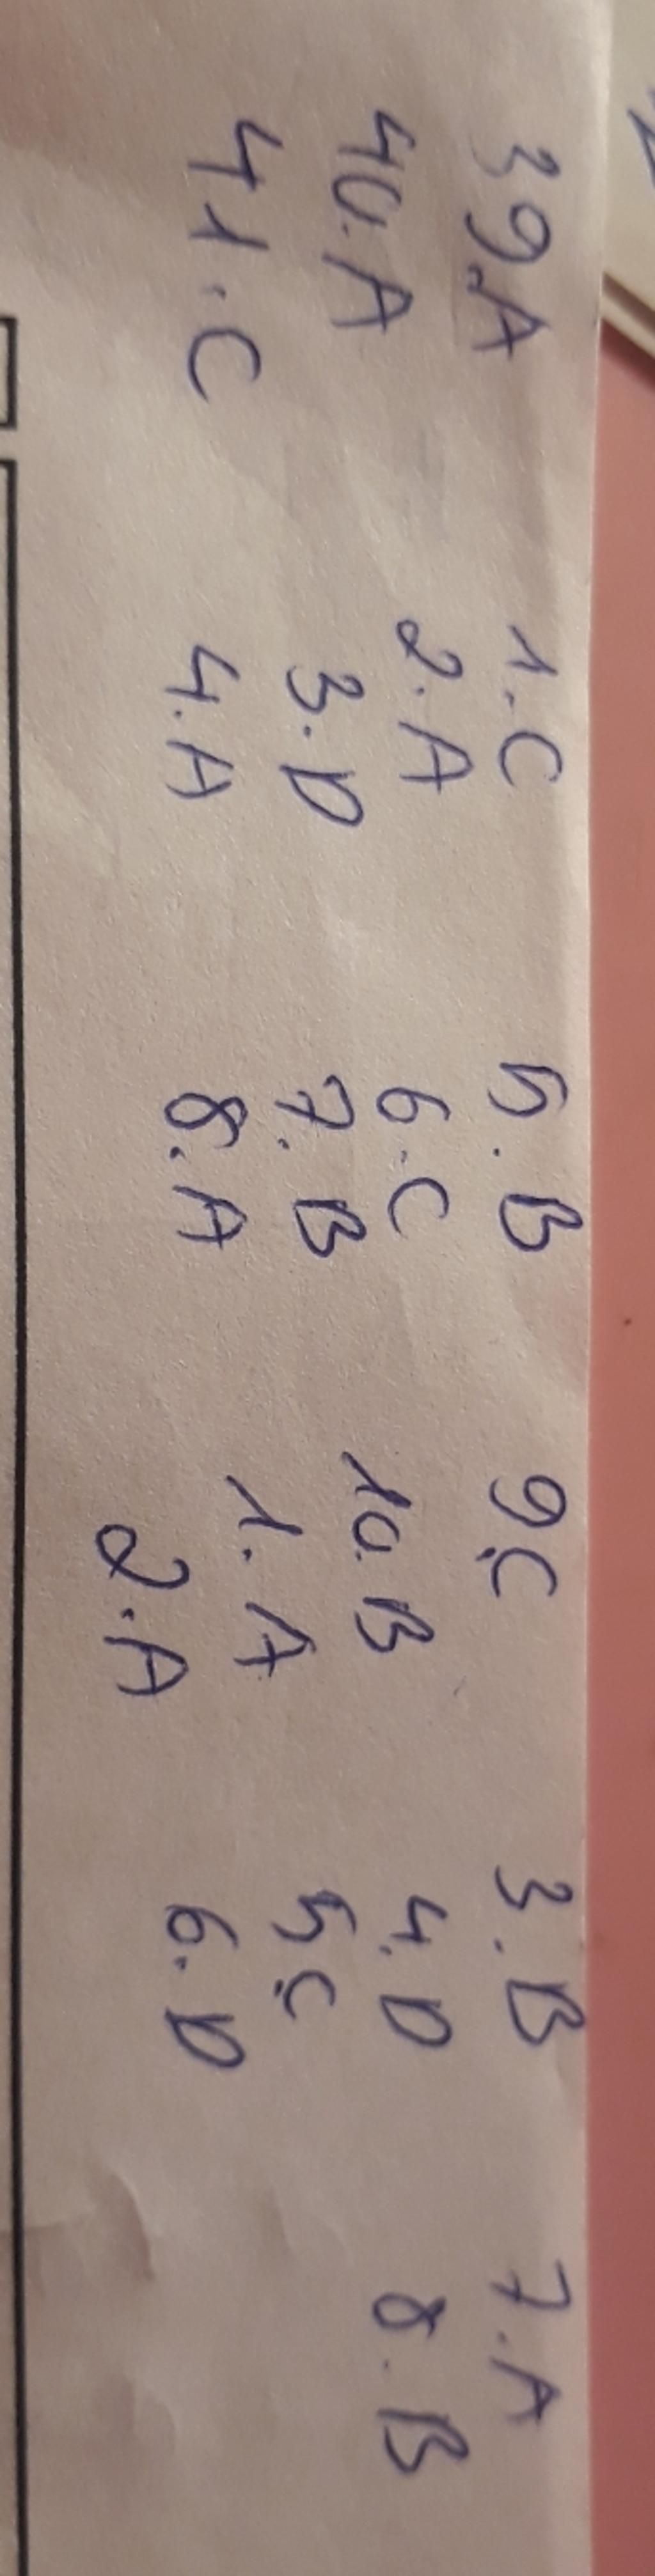 39.A
40.A
41.C
1.C
2.A
3.D
4.A
5.B
6.C
7.B
8.A
9.C
10.B
1.A
2.A
3.B
4.D
5.C
6.D
7.A
8.B